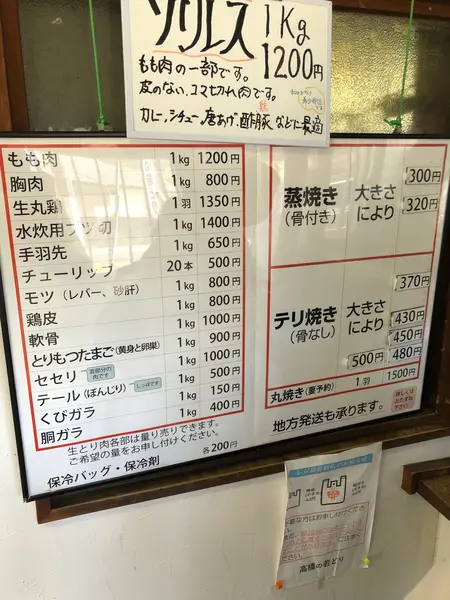 ソリレス 1Kg
1200円
もも肉の一部です。
皮のない、コマ切れ肉です。
カレー、シチュー、唐あげ、酢豚などに最適
もも肉 1kg 1200円
胸肉 1kg 800円
生丸鶏 1羽 1350円
水炊用ブツ切 1kg 1400円
手羽先 1kg 650円
チューリップ 20本 500円
モツ（レバー、砂肝） 1kg 800円
鶏皮 1kg 800円
軟骨 1kg 1000円
とりもつたまご（黄身と卵巣） 1kg 900円
セセリ 首部分の肉です 1kg 1000円
テール（ぼんじり） しっぽです 1kg 500円
くびガラ 1kg 150円
胴ガラ 1kg 400円
生とり肉各部は量り売りできます。
ご希望の量をお申し付けください。
保冷バッグ・保冷剤 各200円
蒸焼き（骨付き） 大きさにより
300円
320円
テリ焼き（骨なし） 大きさにより
370円
430円
450円
500円 480円
丸焼き（要予約） 1羽 1500円
地方発送も承ります。
詳しくはおたずねください
高橋の若どり